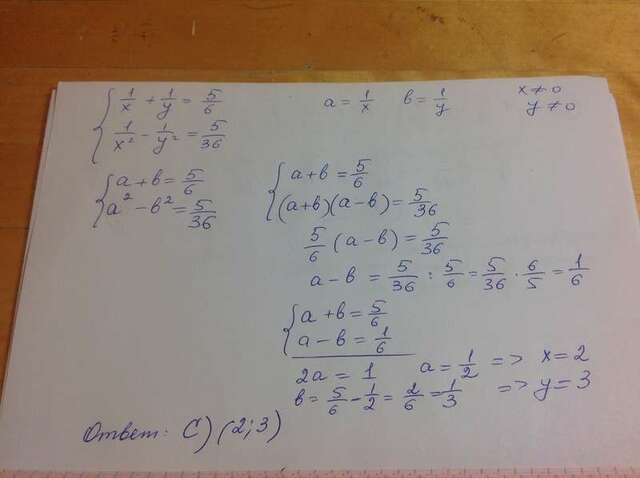 { 1/x + 1/y = 5/6
1/x² - 1/y² = 5/36
a = 1/x в = 1/y
x ≠ 0
y ≠ 0
{ a + в = 5/6
a² - в² = 5/36
{ a + в = 5/6
(a+в)(a-в) = 5/36
5/6 (a-в) = 5/36
a-в = 5/36 : 5/6 = 5/36 · 6/5 = 1/6
{ a + в = 5/6
a - в = 1/6
2a = 1 a = 1/2 => x = 2
в = 5/6 - 1/2 = 2/6 = 1/3 => y = 3
Ответ: C) (2; 3)